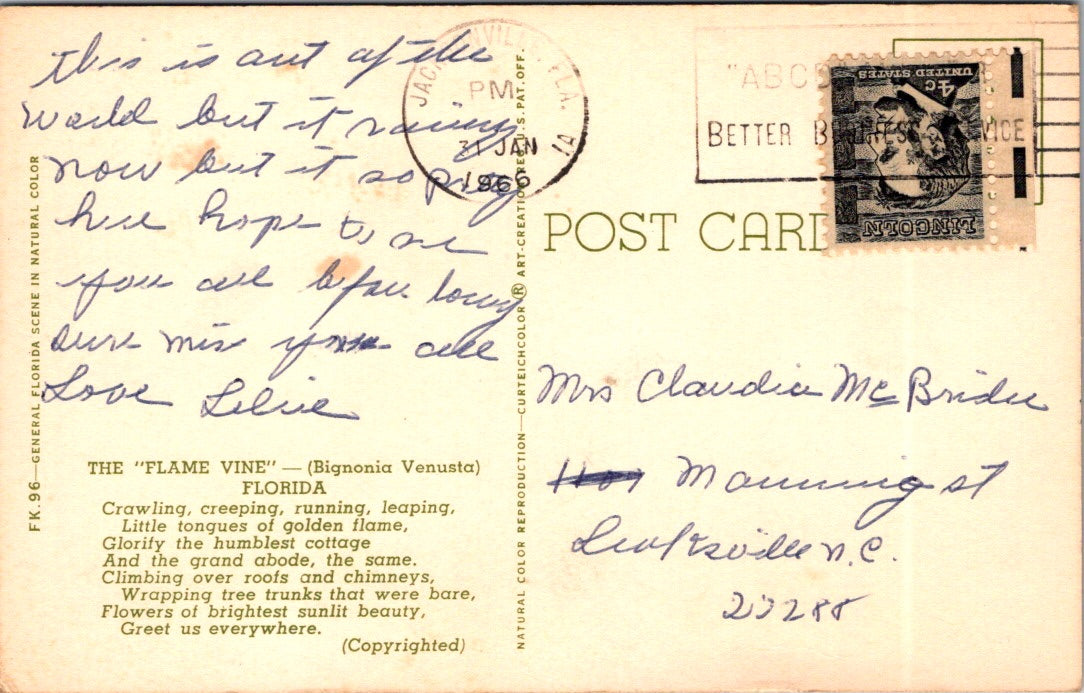 this is out of the
world but it raining
now but it so pretty
here hope to see
you all before long
sure miss you all
Love
THE "FLAME VINE" — (Bignonia Venusta)
FLORIDA
Crawling, creeping, running, leaping,
Little tongues of golden flame,
Glorify the humblest cottage
And the grand abode, the same.
Climbing over roofs and chimneys,
Wrapping tree trunks that were bare,
Flowers of brightest sunlit beauty,
Greet us everywhere.
(Copyrighted)
FK.96—GENERAL FLORIDA SCENE IN NATURAL COLOR
NATURAL COLOR REPRODUCTION—CURTEICHCOLOR ® ART-CREATION REG. U.S. PAT. OFF.
FLA.
PM
31 JAN
1966
1A
"ABC
BETTER
POST CARD
UNITED STATES
4c
LINCOLN
Mrs Claudia McBride
Manning st
Leaksville N.C.
27288